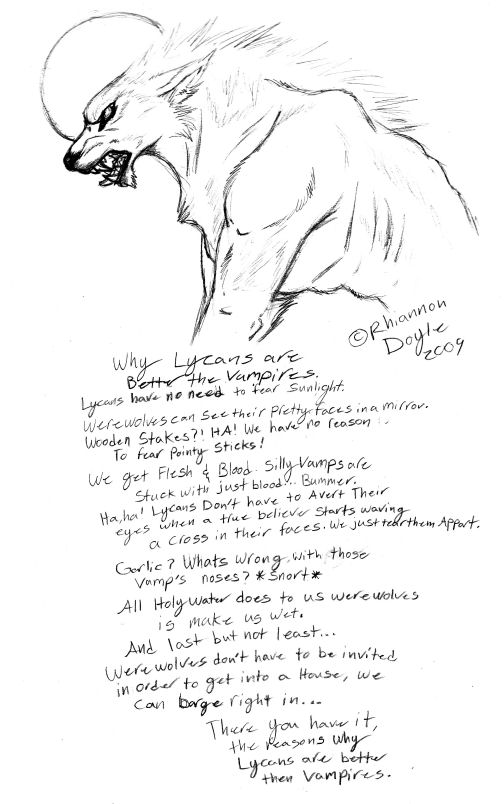 © Rhiannon
Doyle
2009
Why Lycans are
Better the Vampires.
Lycans have no need to fear Sunlight.
Werewolves can see their pretty faces in a mirror.
Wooden Stakes?! HA! We have no reason
To fear pointy Sticks!
We get Flesh & Blood. Silly Vamps are
Stuck with just blood... Bummer.
Ha, ha! Lycans Don't have to Avert Their
eyes when a true believer starts waving
a cross in their faces. We just tear them Appart.
Garlic? Whats wrong with those
Vamp's noses? *Snort*
All Holy Water does to us werewolves
is make us wet.
And last but not least...
Werewolves don't have to be invited
in order to get into a House, we
can barge right in...
There you have it,
the reasons why
Lycans are better
then Vampires.